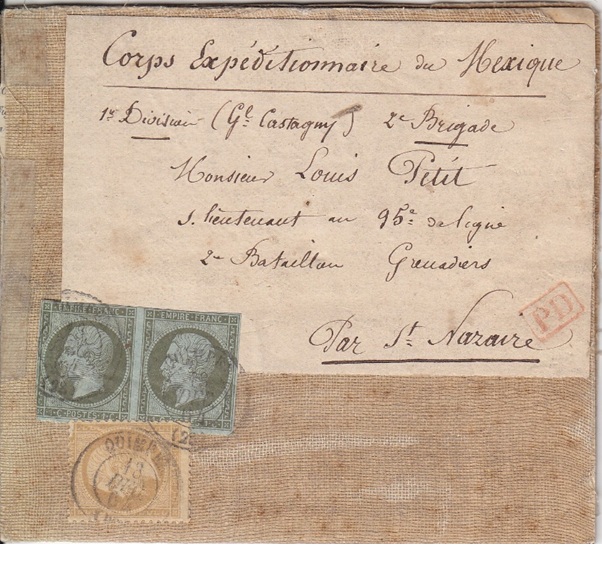 Corps Expéditionnaire du Mexique
1re Division (Gl Castagny) 2e Brigade
Monsieur Louis Petit
s. lieutenant au 95e de ligne
2e Bataillon Grenadiers
Par St. Nazaire
PD
EMPIRE FRANC
QUIMPER
13